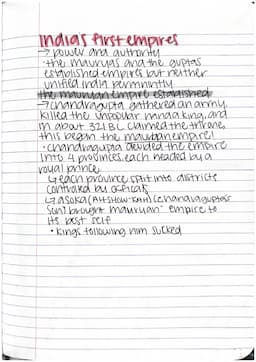 India's first empires
→ power and authority
· the mauryas and the guptas
established empires but neither
unified india permintly
the mauryan empire established
→ chandragupta gathered an army,
killed the unpopular nanda king, and
in about 321 BC claimed the throne,
this began the mauryan empire!
· chandragupta divided the empire
into 4 provinces, each headed by a
royal prince
↳ each province split into districts
controlled by officals
↳ asoka (AH·SHOW·KAH) (chandragupta's
son) brought mauryan empire to
its best self
· kings following him sucked